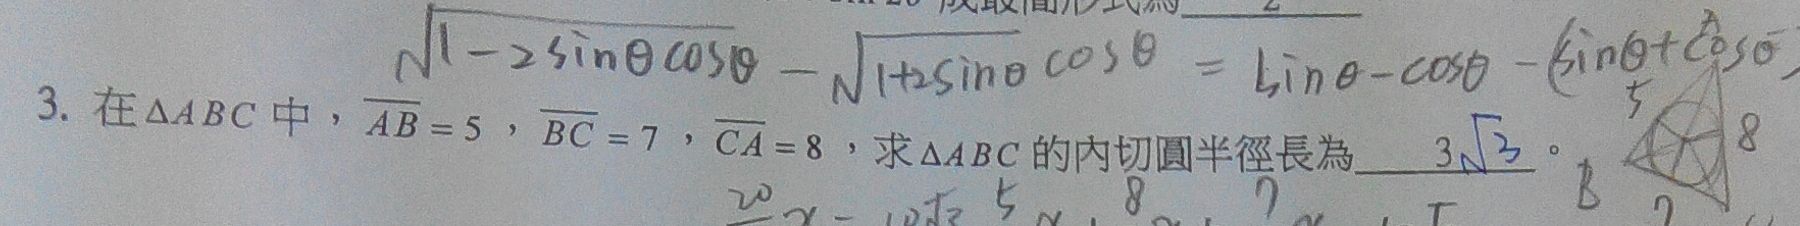 成最簡形式為 2
√1-2sinθcosθ - √1+2sinθ cosθ = sinθ-cosθ - (sinθ+cosθ)
3. 在ΔABC中，AB=5，BC=7，CA=8，求ΔABC的內切圓半徑長為 3√3 。
A
5
8
B
7
20 x = 10√3 5 8 7